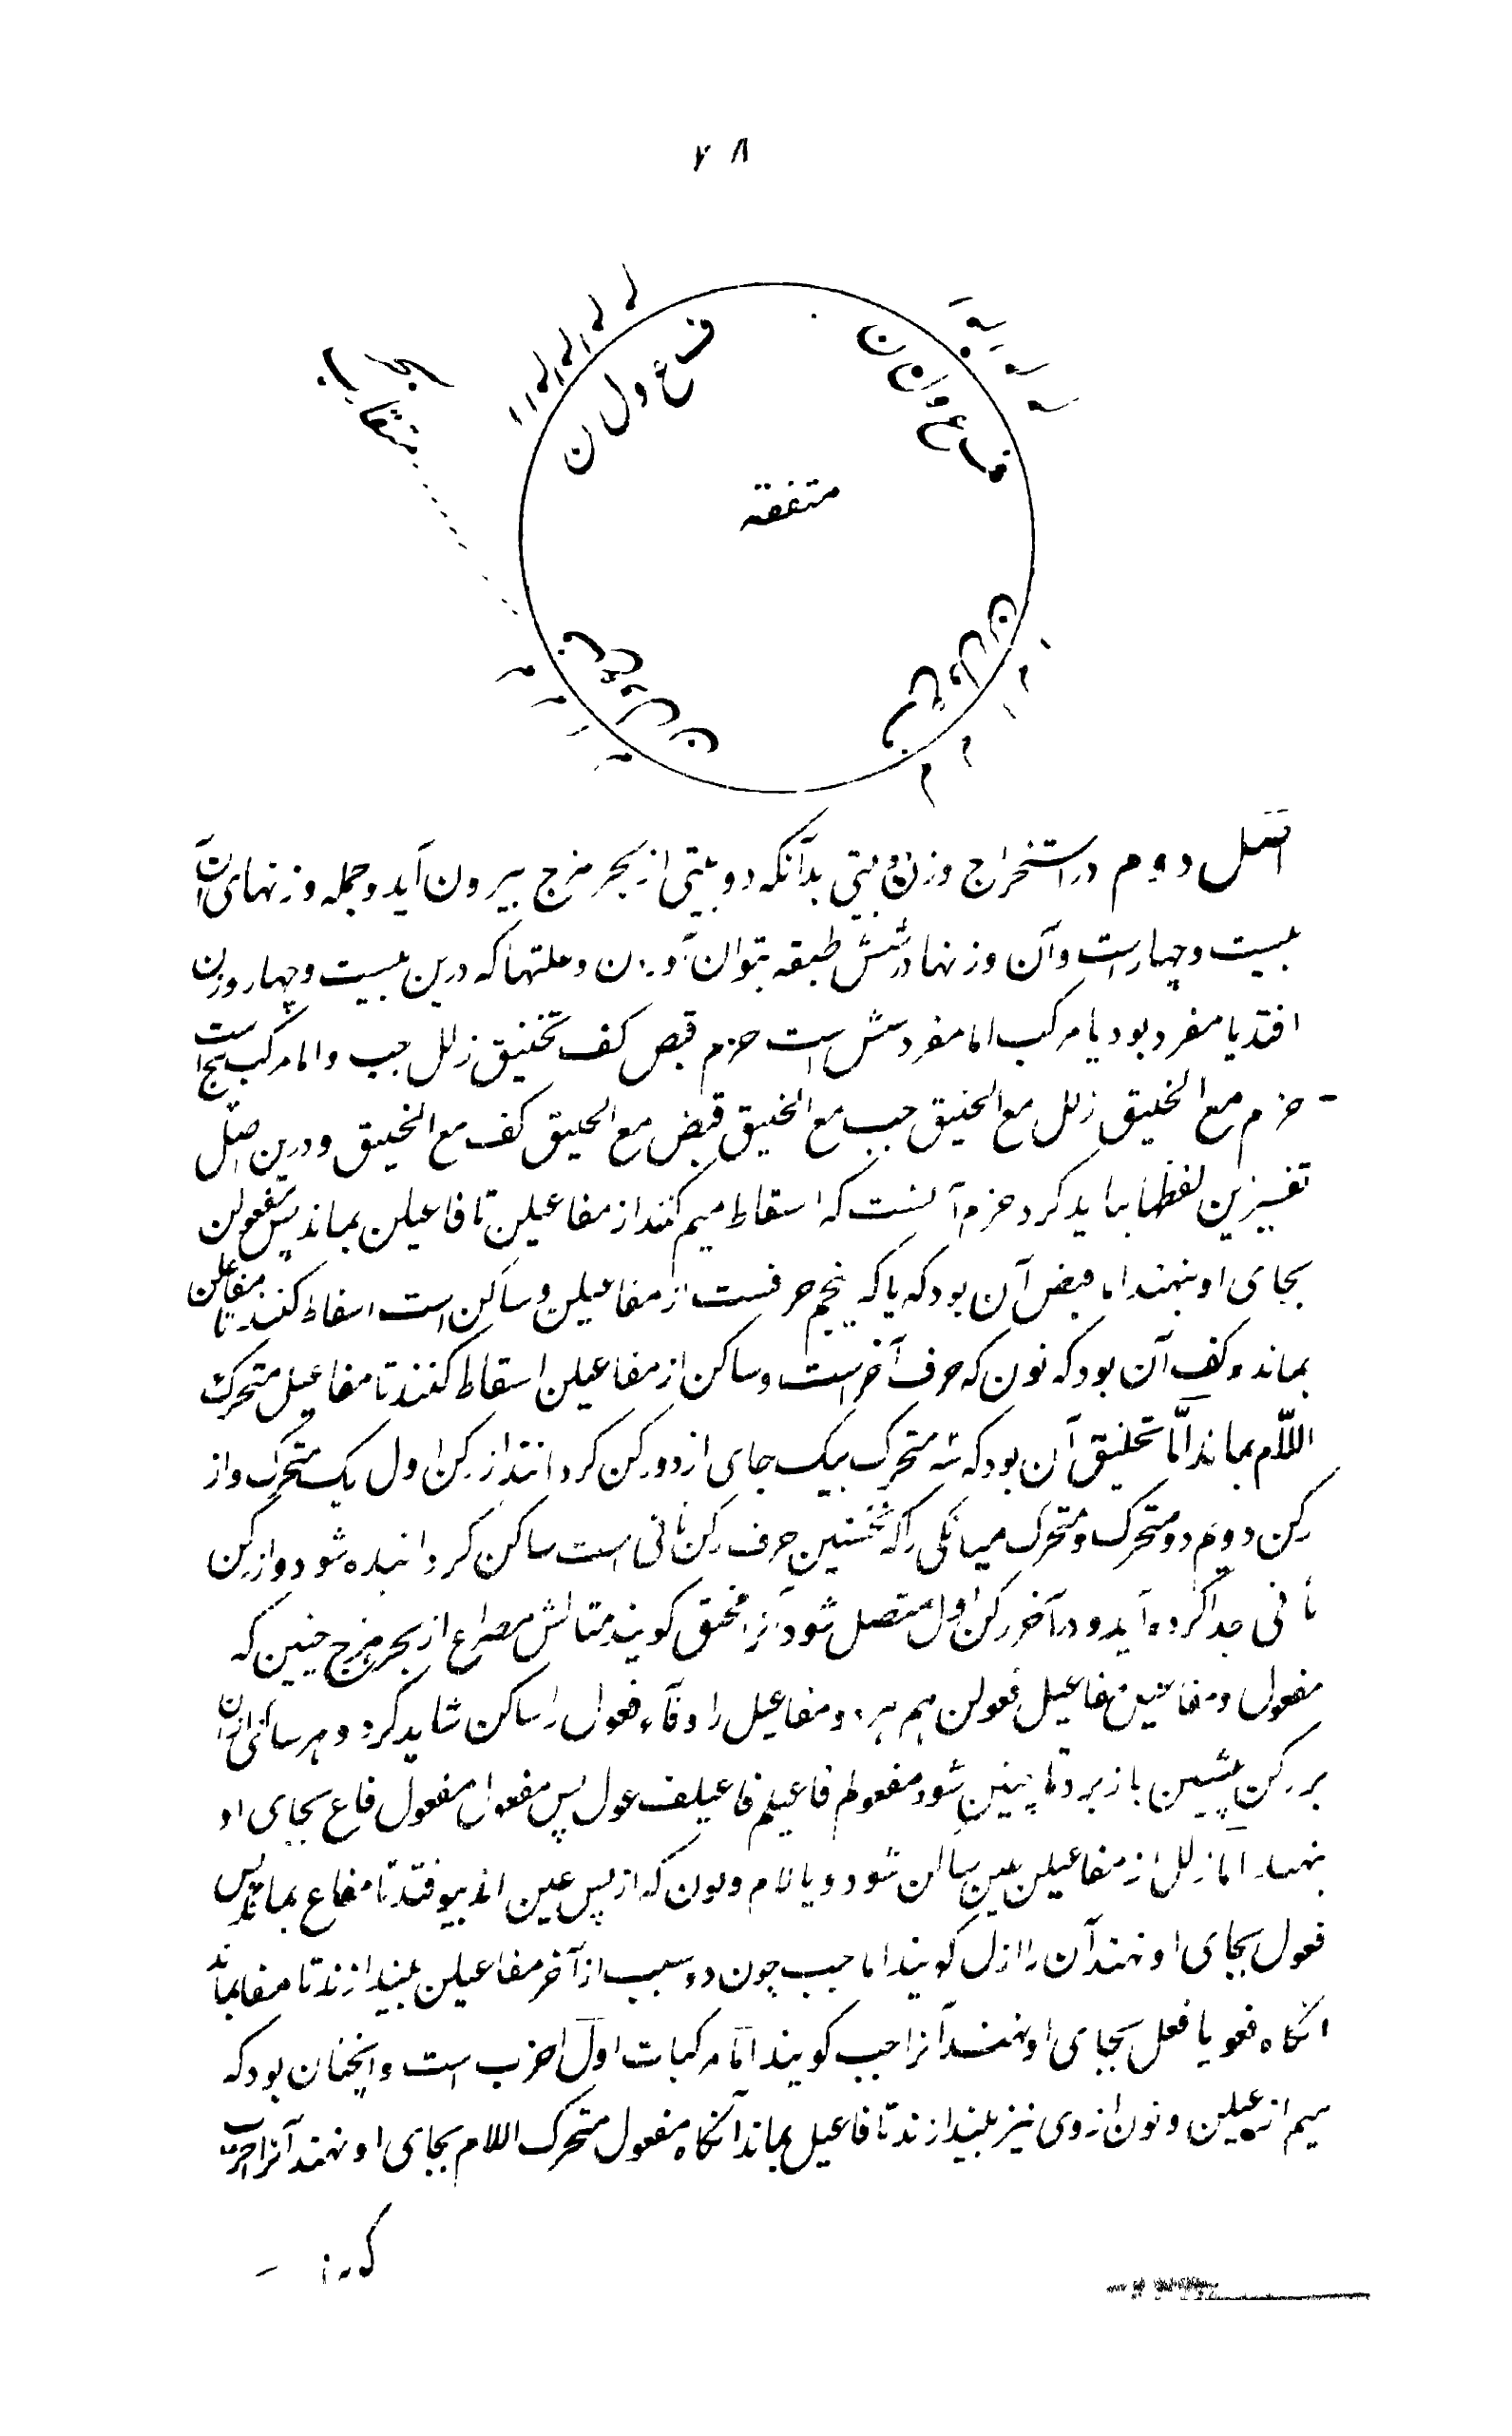 ۷۸
ف ا ع ل ن
ف ع و ل ن
متفقه
اصل دوم در استخراج وزن دوبیتی بدآنکه دو بیتی از بحر هزج بیرون آید و جمله وزنهای آن
بیست و چهارست و آن وزنها در شش طبقه بتوان آوردن و علتها که درین بیست و چهار وزن
افتد یا مفرد بود یا مرکب اما مفرد شش است خرم قبض کف تخنیق زلل جب و اما مرکب پنج است
خرم مع الخنیق زلل مع الخنیق جب مع الخنیق قبض مع الخنیق کف مع الخنیق و درین اصل
تفسیر این لفظها بباید کرد خرم آنست که اسقاط میم کنند از مفاعیلن تا فاعیلن بماند پس مفعولن
بجای او بنهند اما قبض آن بود که یا که پنجم حرفست از مفاعیلن و ساکن است اسقاط کنند تا مفاعلن
بماند و کف آن بود که نون که حرف آخر است و ساکن از مفاعیلن اسقاط کنند تا مفاعیل متحرک
اللام بماند امّا تخنیق آن بود که سه متحرک بیک جای از دو رکن گرد افتد از رکن اول یک متحرک و از
رکن دوم دو متحرک و متحرک میانگی را که نخستین حرف رکن ثانی است ساکن گردانیده شود و از رکن
ثانی جدا کرده آید و در آخر رکن اول متصل شود آنرا مخنق گویند مثالش مصراع از بحر هزج چنین که
مفعول و مفاعیل مفاعیل فعولن میم هر دو مفاعیل را و فاء فعول را ساکن شاید کرد و هر ساکنی از آن
بر رکن پیشین باز برد تا چنین شود مفعولم فاعیلم فاعیلف عول پس مفعول مفعول فاع بجای او
بنهند اما زلل از مفاعیلن عین ساکن شود و یا و لام و نون که از پس عین اند بیوفتد تا مفاع بماند پس
فعول بجای او نهند آن را ازل گویند اما جب چون دو سبب از آخر مفاعیلن بیندازند تا مفا بماند
انگاه فعو یا فعل بجای او نهند آنرا جب گویند امّا مرکبات اوّل اخرب است و اینچنان بود که
میم از عیلن و نون از وی نیز بیندازند تا فاعیل بماند آنگاه مفعول متحرک اللام بجای او نهند آنرا اخرب